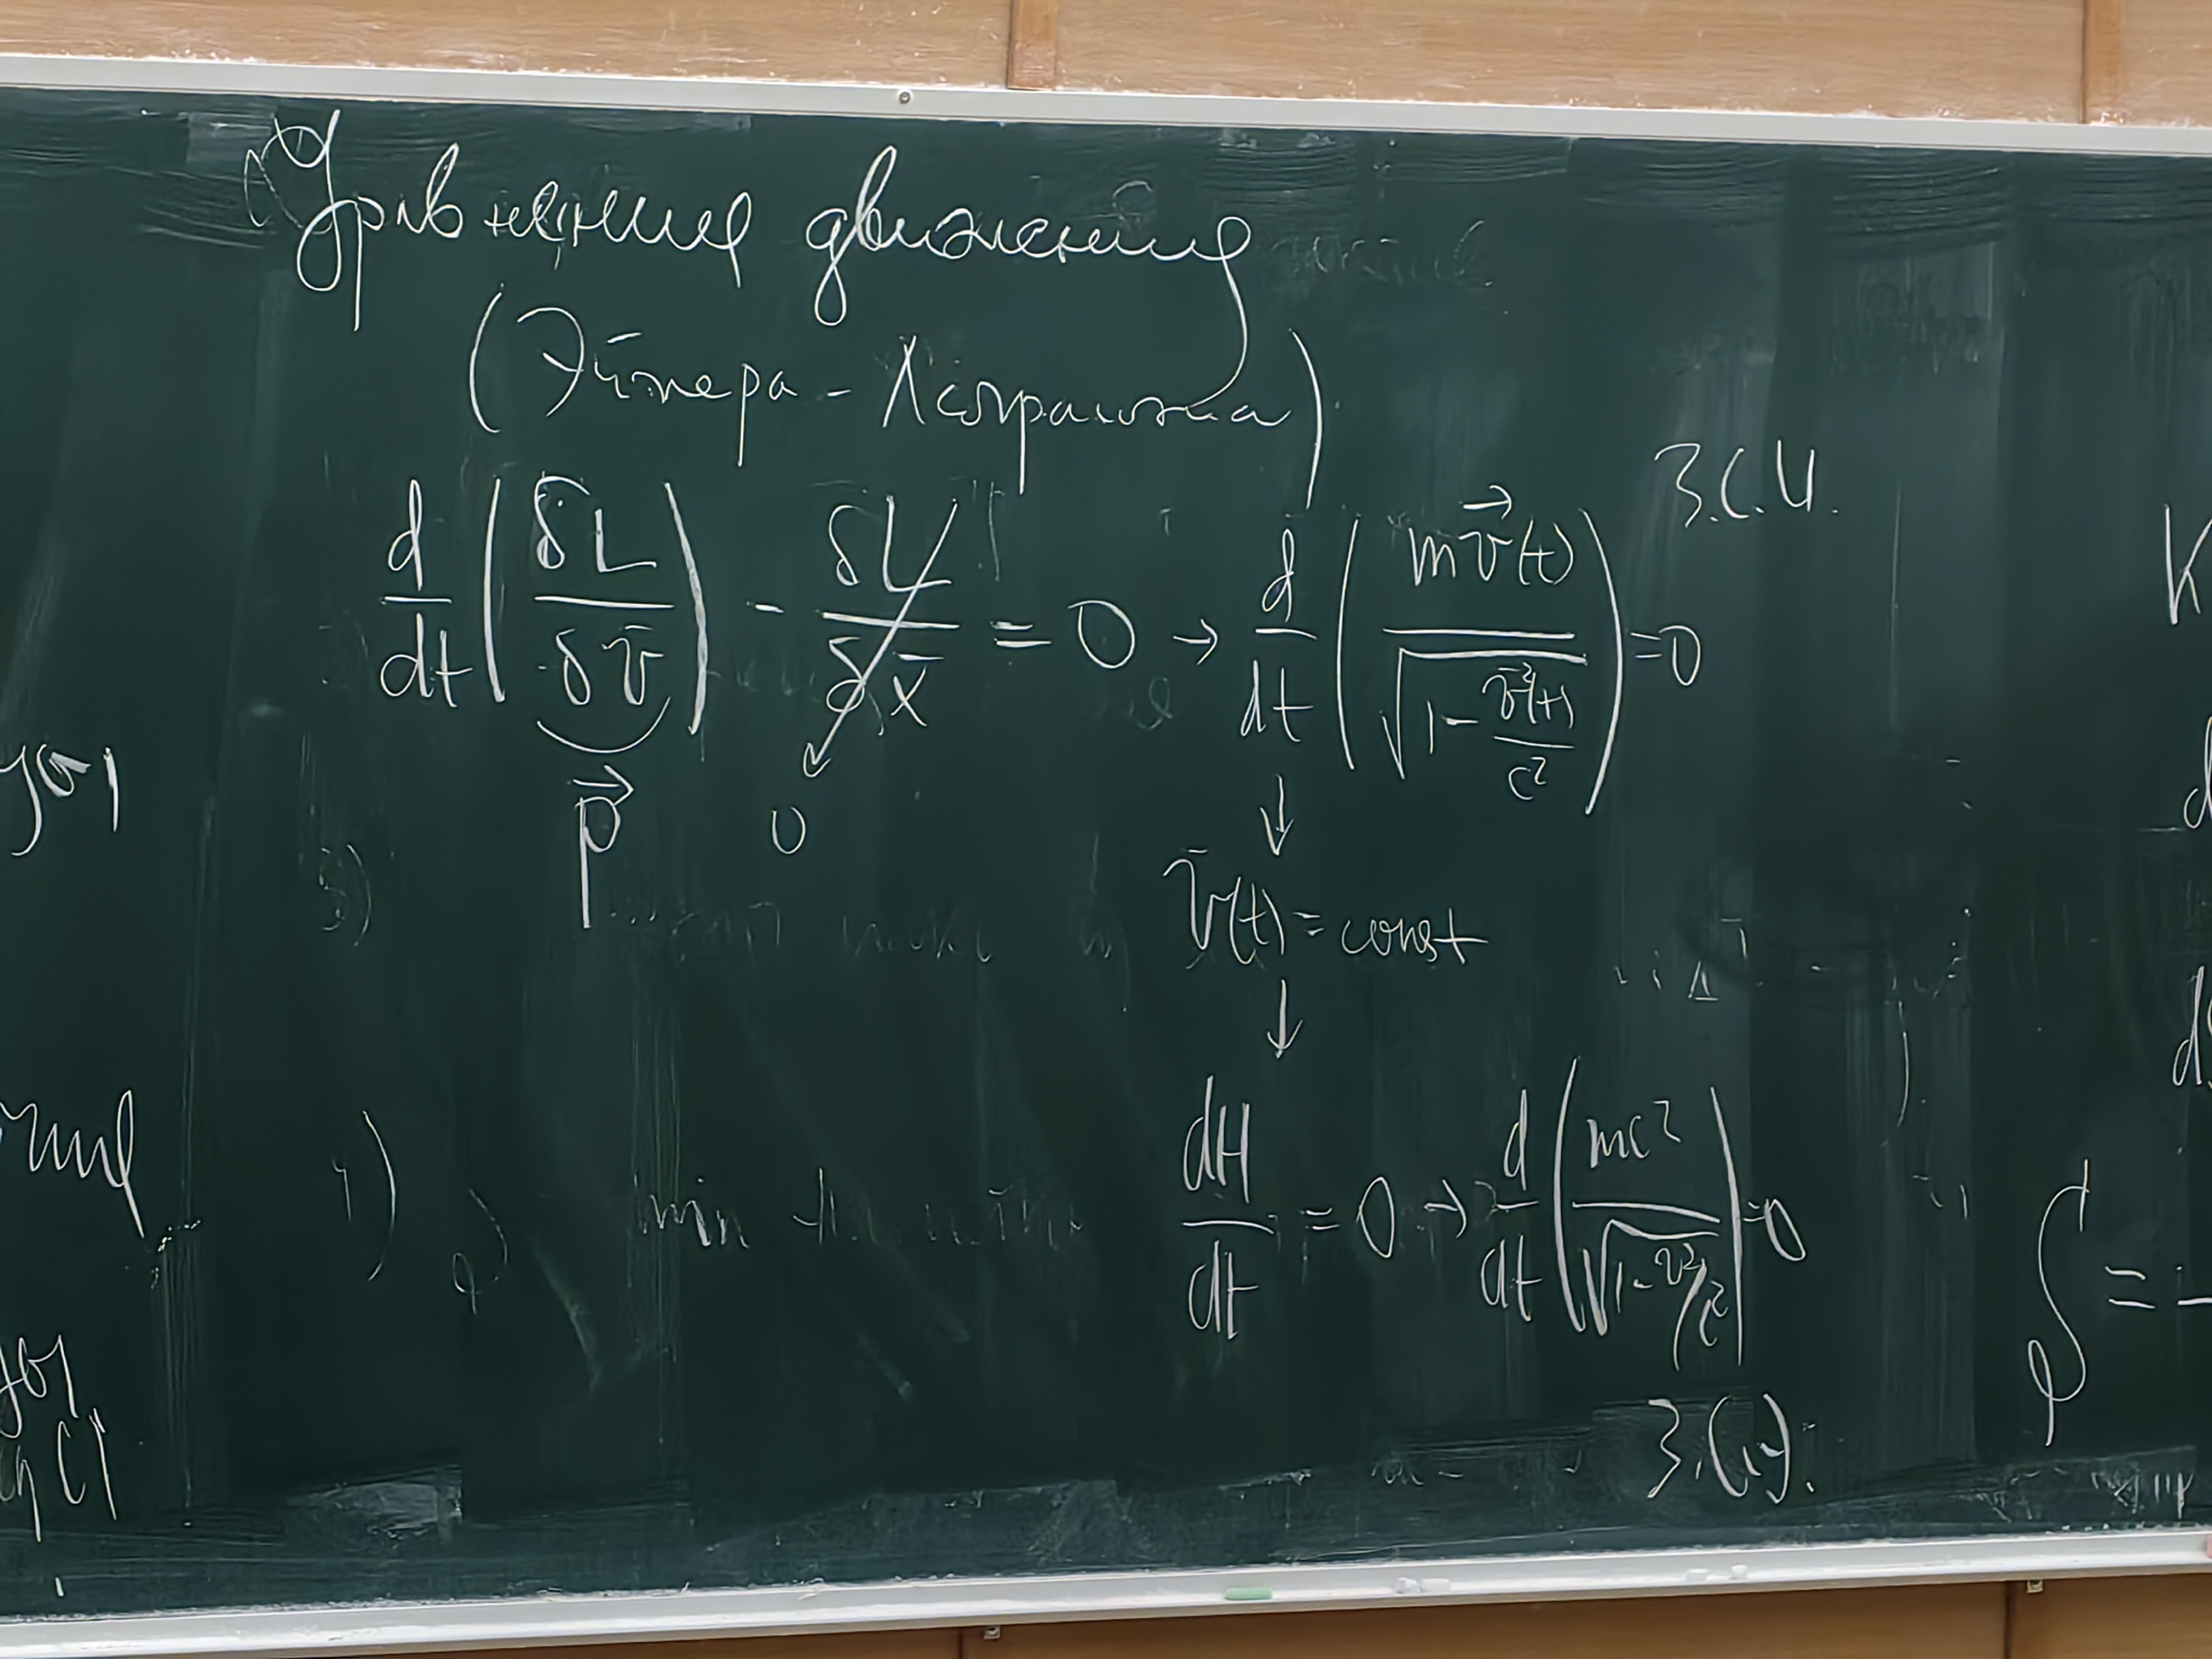 Уравнения движения
(Эйлера - Лагранжа)
З.С.И.
d/dt (δL/δv̄) - δL/δx̄ = 0 → d/dt (mv⃗(t)/√(1 - v̄²(t)/c²)) = 0
p⃗ 0
↓
v̄(t) = const
↓
dH/dt = 0 → d/dt (mc²/√(1 - v²/c²)) = 0
З.С.Э.